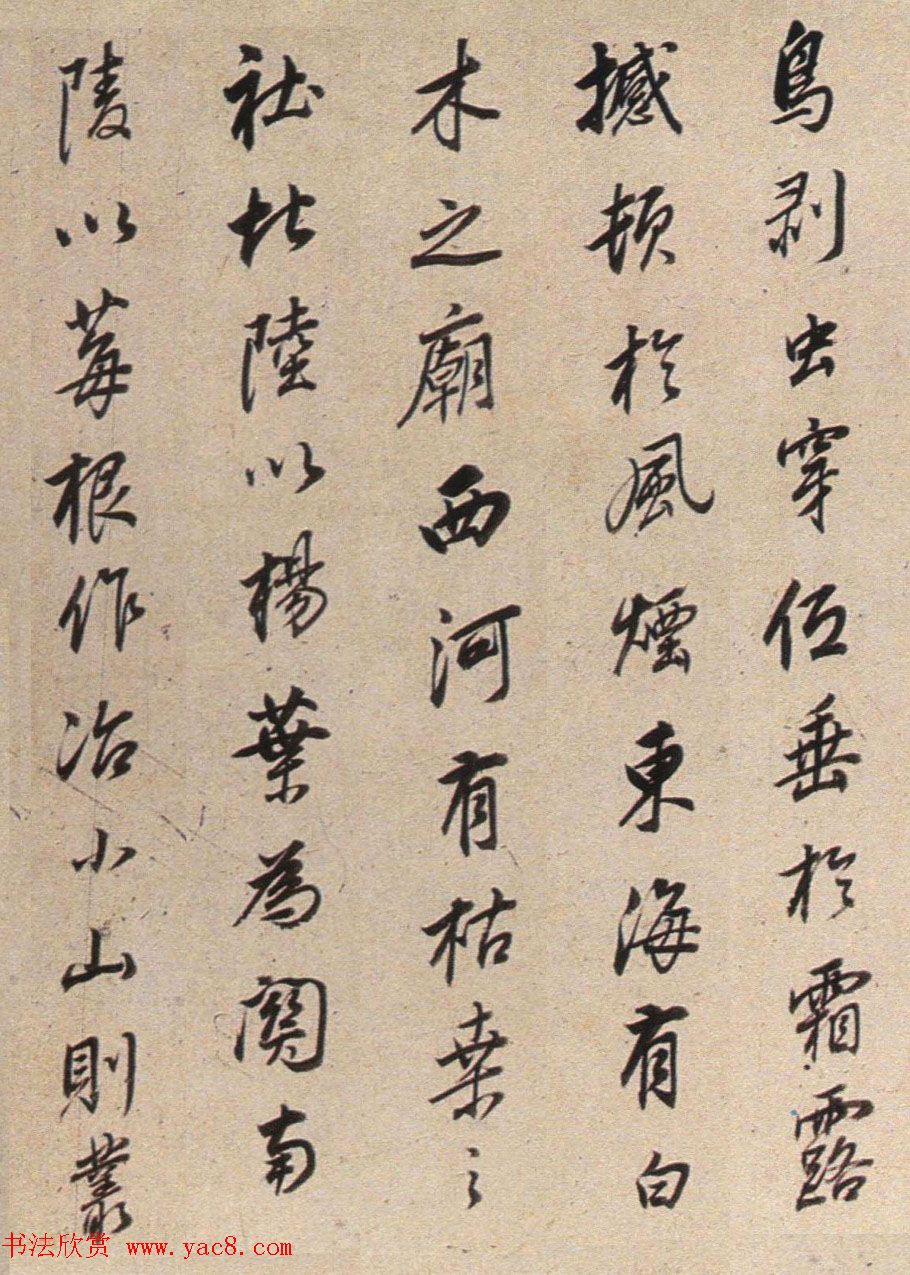 鳥剥虫穿低垂於霜露
撼頓於風煙東海有白
木之廟西河有枯桒之
社北陸以楊葉為關南
陵以莓根作冶小山則叢
书法欣赏 www.yac8.com